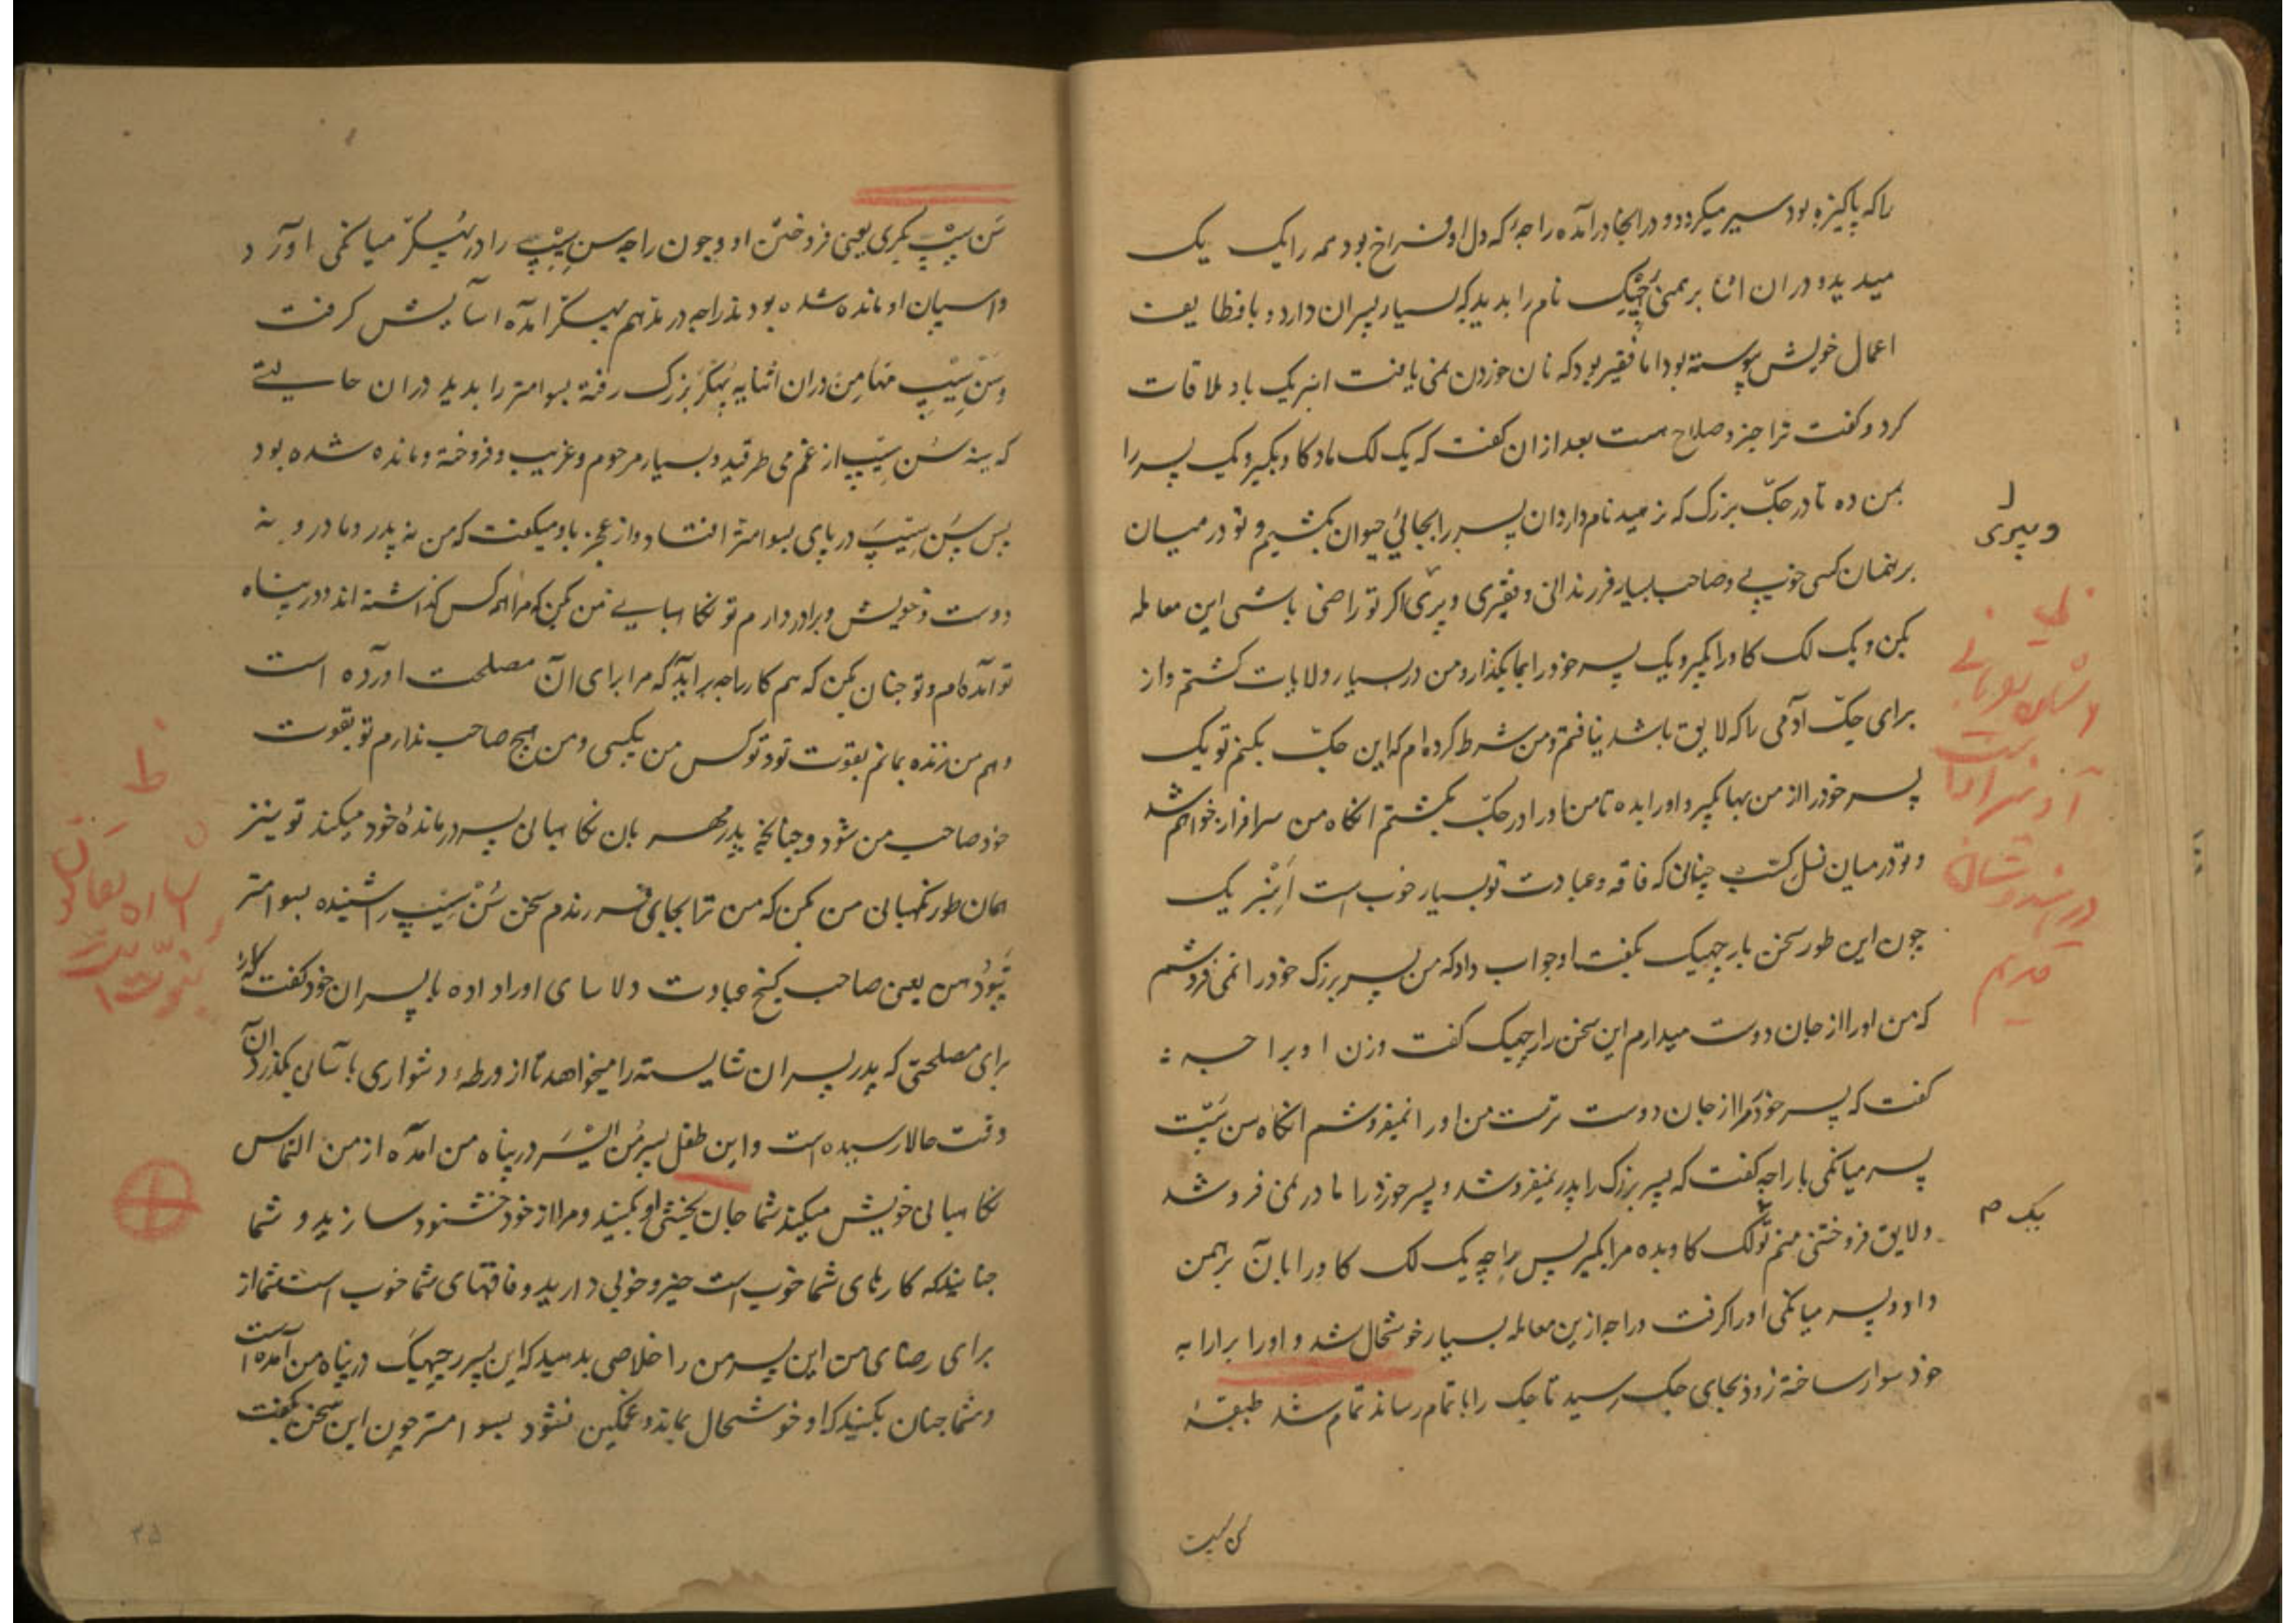 را که پاکیزه بود سیر میکرد و در انجا در آمده راجهٔ که دل او فراخ بود همه را یک یک
میدید و در ان اثنا برهمنی رچیک نام را بدید که بسیار پسران دارد و با وظایف
اعمال خویش پیوسته بود اما فقیر بود که نان خوردن نمی یافت انبریک باو ملاقات
کرد و کفت ترا خیر و صلاح هست بعد از ان کفت که یک لک ماده کاو بکیر و یک پسر را
بمن ده تا در جک بزرک که نرمید نام دارد ان پسر را بجائی حیوان بکشیم و تو در میان
برهمنان کسی خوبی و صاحب بسیار فرزندانی و فقیری و پیری اکر تو راضی باشی این معامله
بکن و یک لک کاو را بکیر و یک پسر خود را بما بکذار و من در بسیار ولایات کشتم و از
برای جک آدمی را که لایق باشد نیافتم و من شرط کرده ام که این جک بکنم تو یک
پسر خود را از من بها بکیر و او را بده تا من او را در جک بکشتم انکاه من سرافراز خواهم شد
و تو در میان نسل کشپ چنان که فاقه و عبادت تو بسیار خوب است انبریک
چون این طور سخن بارچیک بکفت او جواب داد که من پسر بزرک خود را نمی فروشم
که من او را از جان دوست میدارم این سخن را رچیک کفت و زن او براجه
کفت که پسر خورد مرا از جان دوست ترست من او را نمیفروشم انکاه سن سیپ
پسر میانکی با راجه کفت که پسر بزرک را پدر نمیفروشد و پسر خورد را مادر نمی فروشد
و لایق فروختن منم تو لک کاو بده مرا بکیر پس راجه یک لک کاو را بآن برهمن
داد و پسر میانکی او را کرفت و راجه ازین معامله بسیار خوشحال شد و او را برارابه
خود سوار ساخته زود بجای جک رسید تا جک را باتمام رساند تمام شد طبقهٔ
ویپری
یک م
سن سیپ بکری یعنی فروختن او و چون راجه سن سیپ را در پهکر میانکی اورد
و اسپان او مانده شده بود ند راجه در مذهم پهکر آمده آسایش کرفت
و سن سیپ مهامن در ان اثنا به پهکر بزرک رفته بسوامتر را بدید در ان حالیتی
که سینه سن سیپ از غم می طرقید و بسیار مرحوم و غریب و فروخته و مانده شده بود
پس سن سیپ در پای بسوامتر افتاد و از عجز باو میکفت که من نه پدر و مادر و نه
دوست و خویش و برادر دارم تو نکاهبایی من بکن که مرا همه کس کذاشته اند و در پناه
تو آمده ام و تو چنان بکن که هم کار راجه برآید که مرا برای آن مصلحت اورده است
و هم من زنده بمانم بقوت تو و تو کس من بیکسی و من هیچ صاحب ندارم تو بقوت
خود صاحب من شو و چنانچه پدر مهربان نکاهبانی پسر درماندهٔ خود میکند تو نیز
همان طور نکهبانی من بکن که من ترا بجای فرزندم سخن سن سیپ را شنیده بسوامتر
تپودهن یعنی صاحب کنج عبادت دلاسای او را داده با پسران خود کفت که
برای مصلحتی که پدر پسران شایسته را میخواهد تا از ورطهٔ دشواری بآسانی بکذرد آن
وقت حالا رسیده است و این طفل پسر من ایسر در پناه من امده از من التماس
نکاهبانی خویش میکند شما جان بخشی او بکنید و مرا از خود خشنود سازید و شما
چنانید که کارهای شما خوب است خیر و خوبی دارید و فاقهای شما خوب است شما از
برای رضای من این پسر من را خلاصی بدهید که این پسر رچیک در پناه من آمده است
و شما چنان بکنید که او خوشحال بماند و غمکین نشود بسوامتر چون این سخن بکفت
۳۵